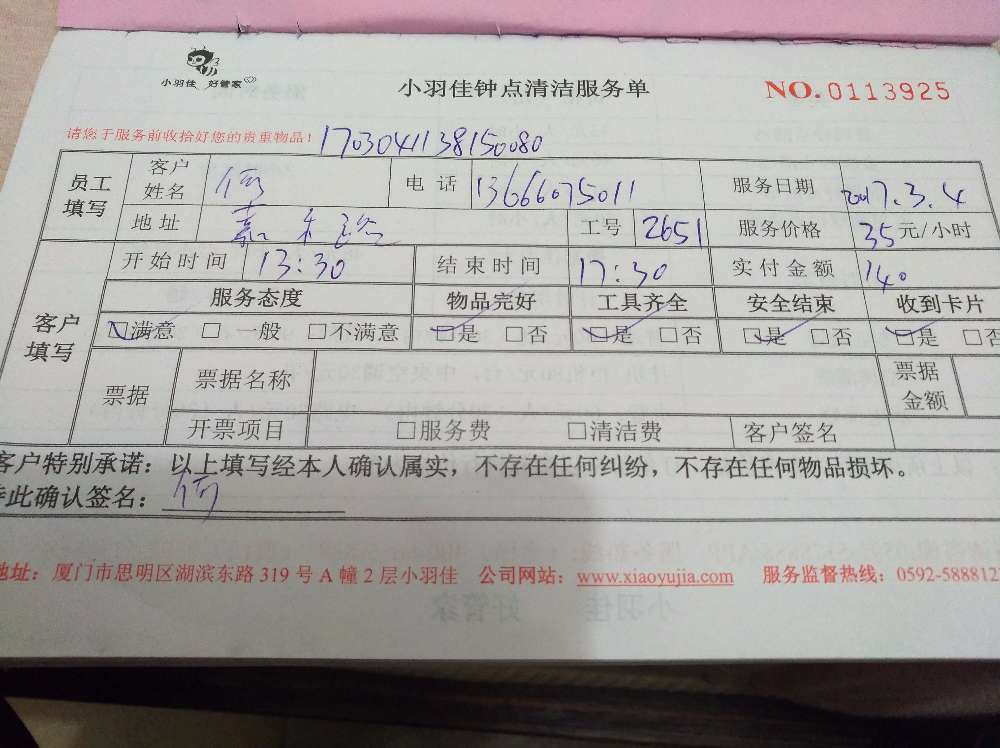 小羽佳 好管家
小羽佳钟点清洁服务单
NO.0113925
请您于服务前收拾好您的贵重物品！ 1703041138150080
员工填写 客户姓名 何 电话 13666075011 服务日期 2017.3.4
地址 嘉 工号 2651 服务价格 35元/小时
客户填写 开始时间 13:30 结束时间 17:30 实付金额 140
服务态度 物品完好 工具齐全 安全结束 收到卡片
☑满意 □ 一般 □不满意 ☑是 □否 ☑是 □否 ☑是 □否 ☑是 □否
票据 票据名称 票据金额
开票项目 □服务费 □清洁费 客户签名
客户特别承诺：以上填写经本人确认属实，不存在任何纠纷，不存在任何物品损坏。
此确认签名：何
地址：厦门市思明区湖滨东路 319 号 A 幢 2 层小羽佳 公司网站：www.xiaoyujia.com 服务监督热线：0592-588812